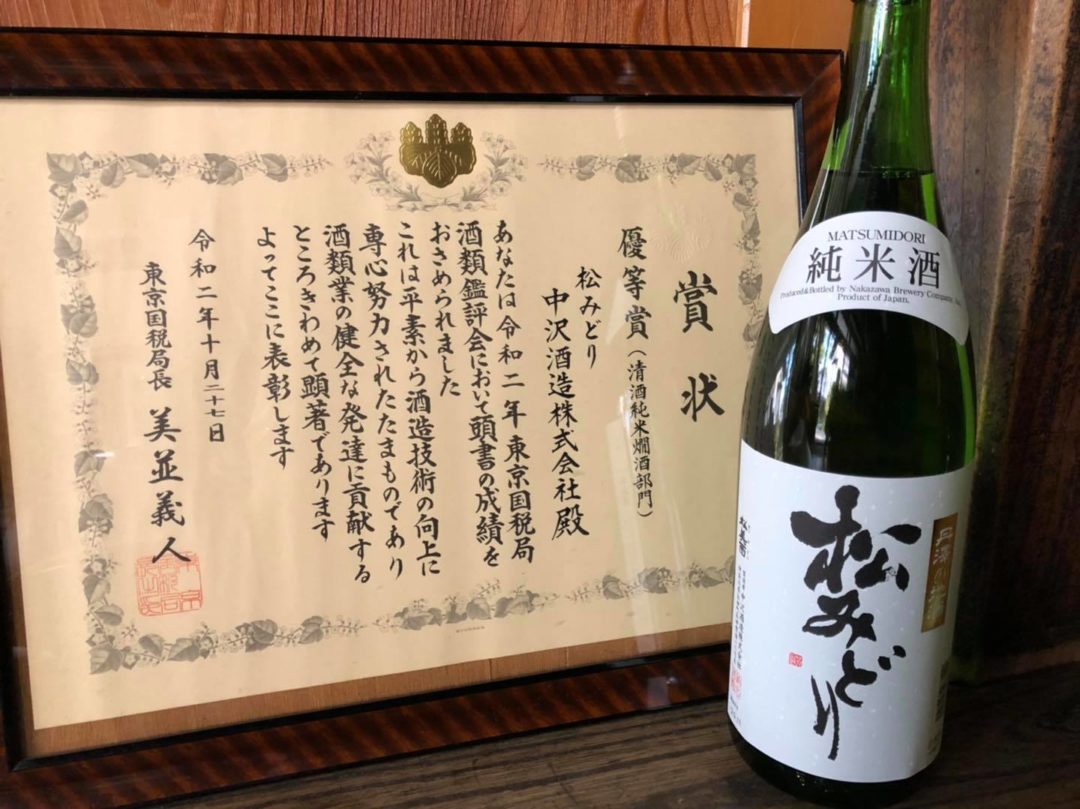 賞状
優等賞（清酒純米燗酒部門）
松みどり
中沢酒造株式会社殿
あなたは令和二年東京国税局
酒類鑑評会において頭書の成績を
おさめられました
これは平素から酒造技術の向上に
専心努力されたたまものであり
酒類業の健全な発達に貢献する
ところきわめて顕著であります
よってここに表彰します
令和二年十月二十七日
東京国税局長 美並義人
MATSUMIDORI
純米酒
Produced&Bottled by Nakazawa Brewery Company,
Product of Japan.
松みどり